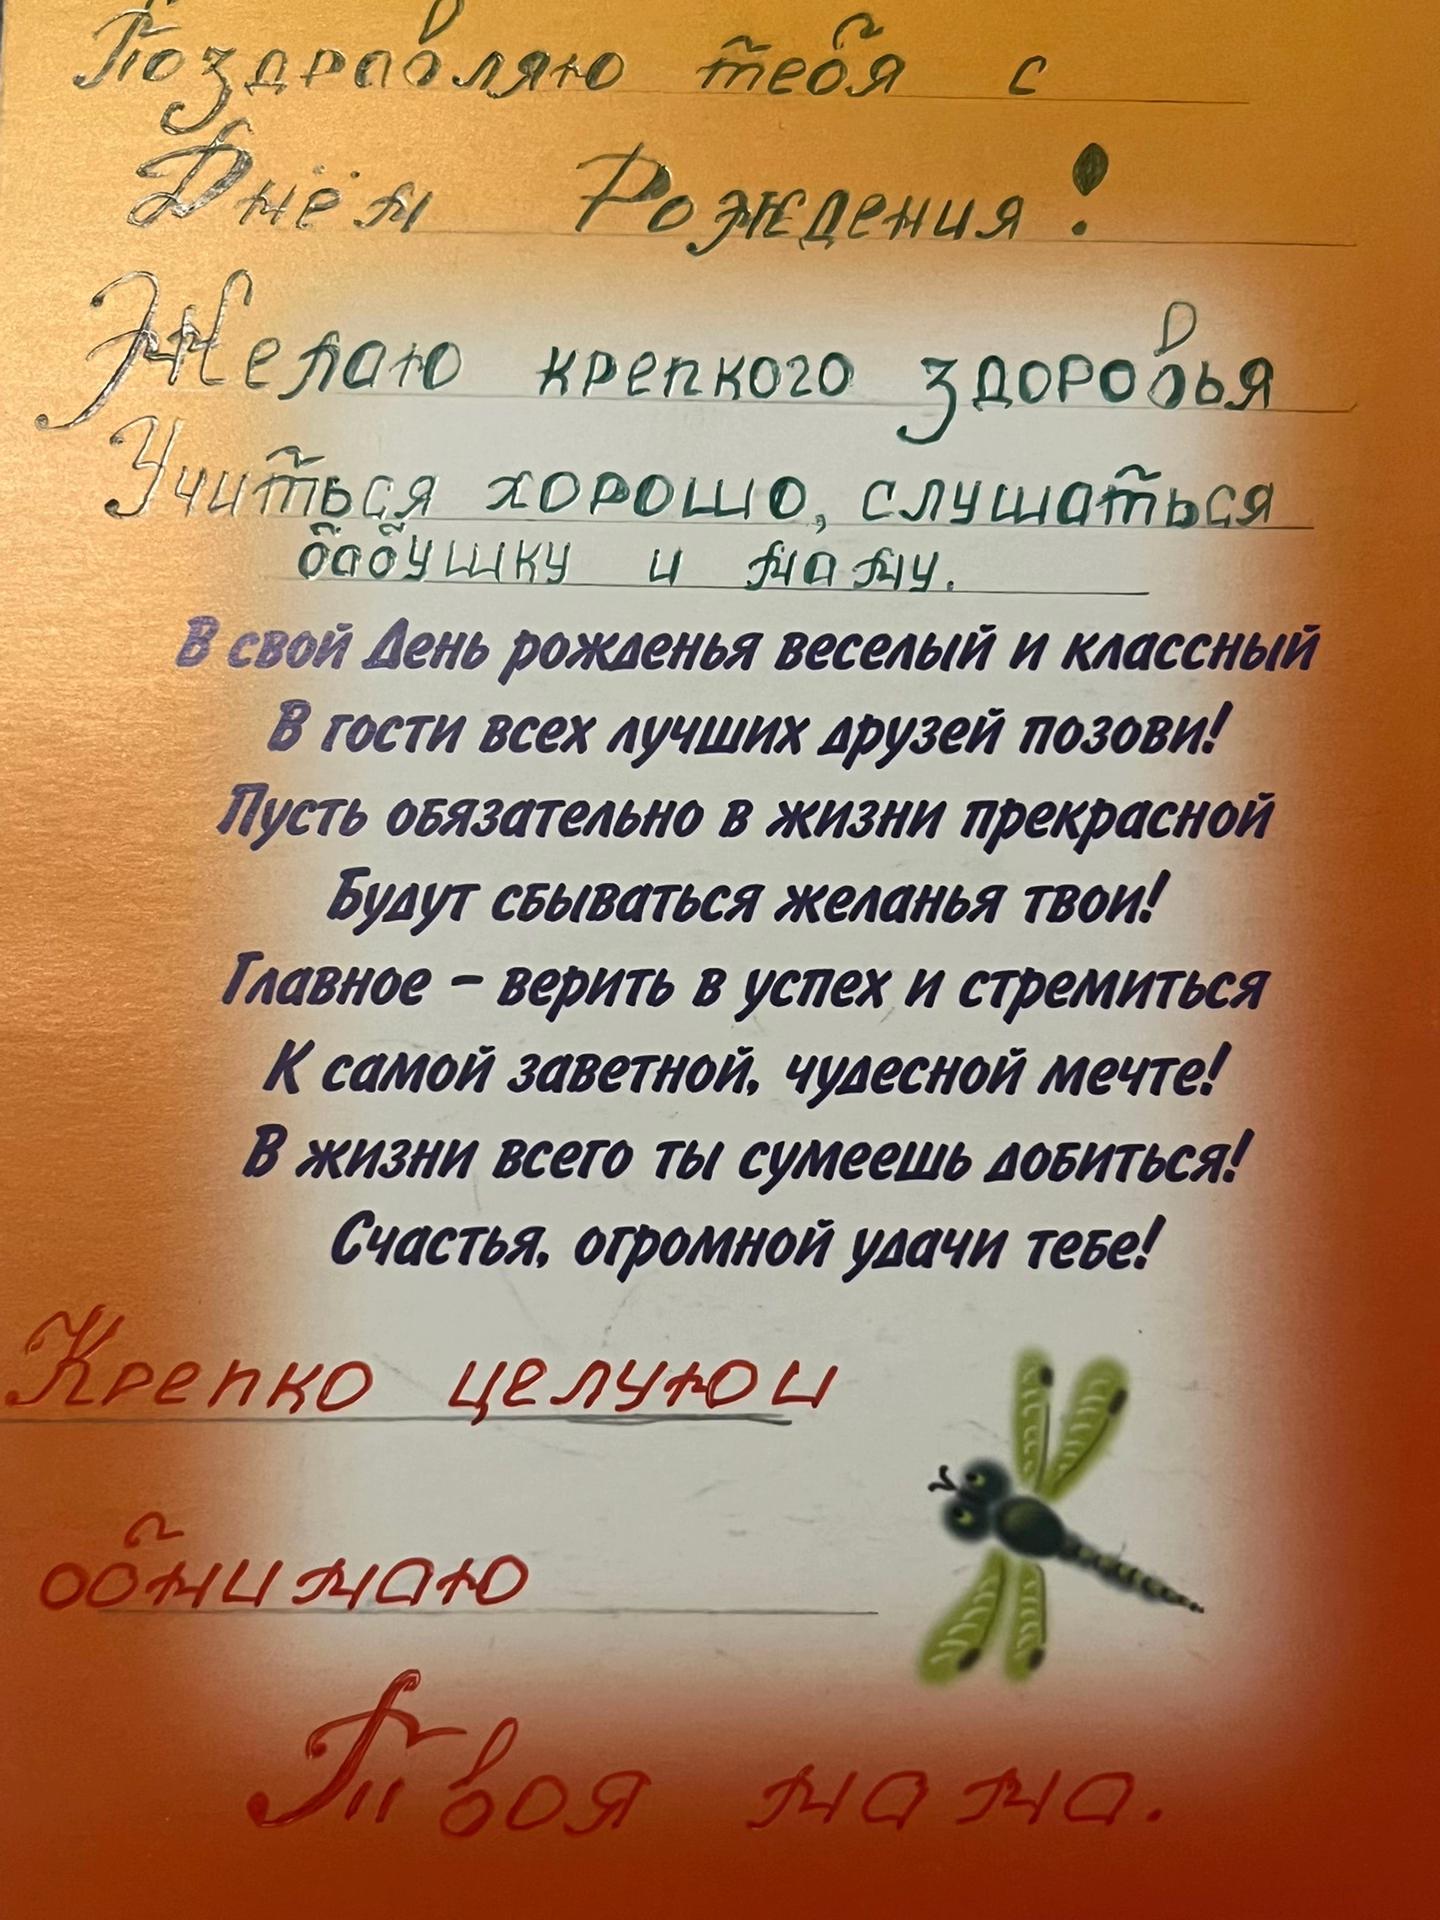 Поздравляю тебя с
Днём Рождения!
Желаю крепкого здоровья
Учиться хорошо, слушаться
бабушку и маму.
В свой День рожденья веселый и классный
В гости всех лучших друзей позови!
Пусть обязательно в жизни прекрасной
Будут сбываться желанья твои!
Главное – верить в успех и стремиться
К самой заветной, чудесной мечте!
В жизни всего ты сумеешь добиться!
Счастья, огромной удачи тебе!
Крепко целую и
обнимаю
Твоя мама.